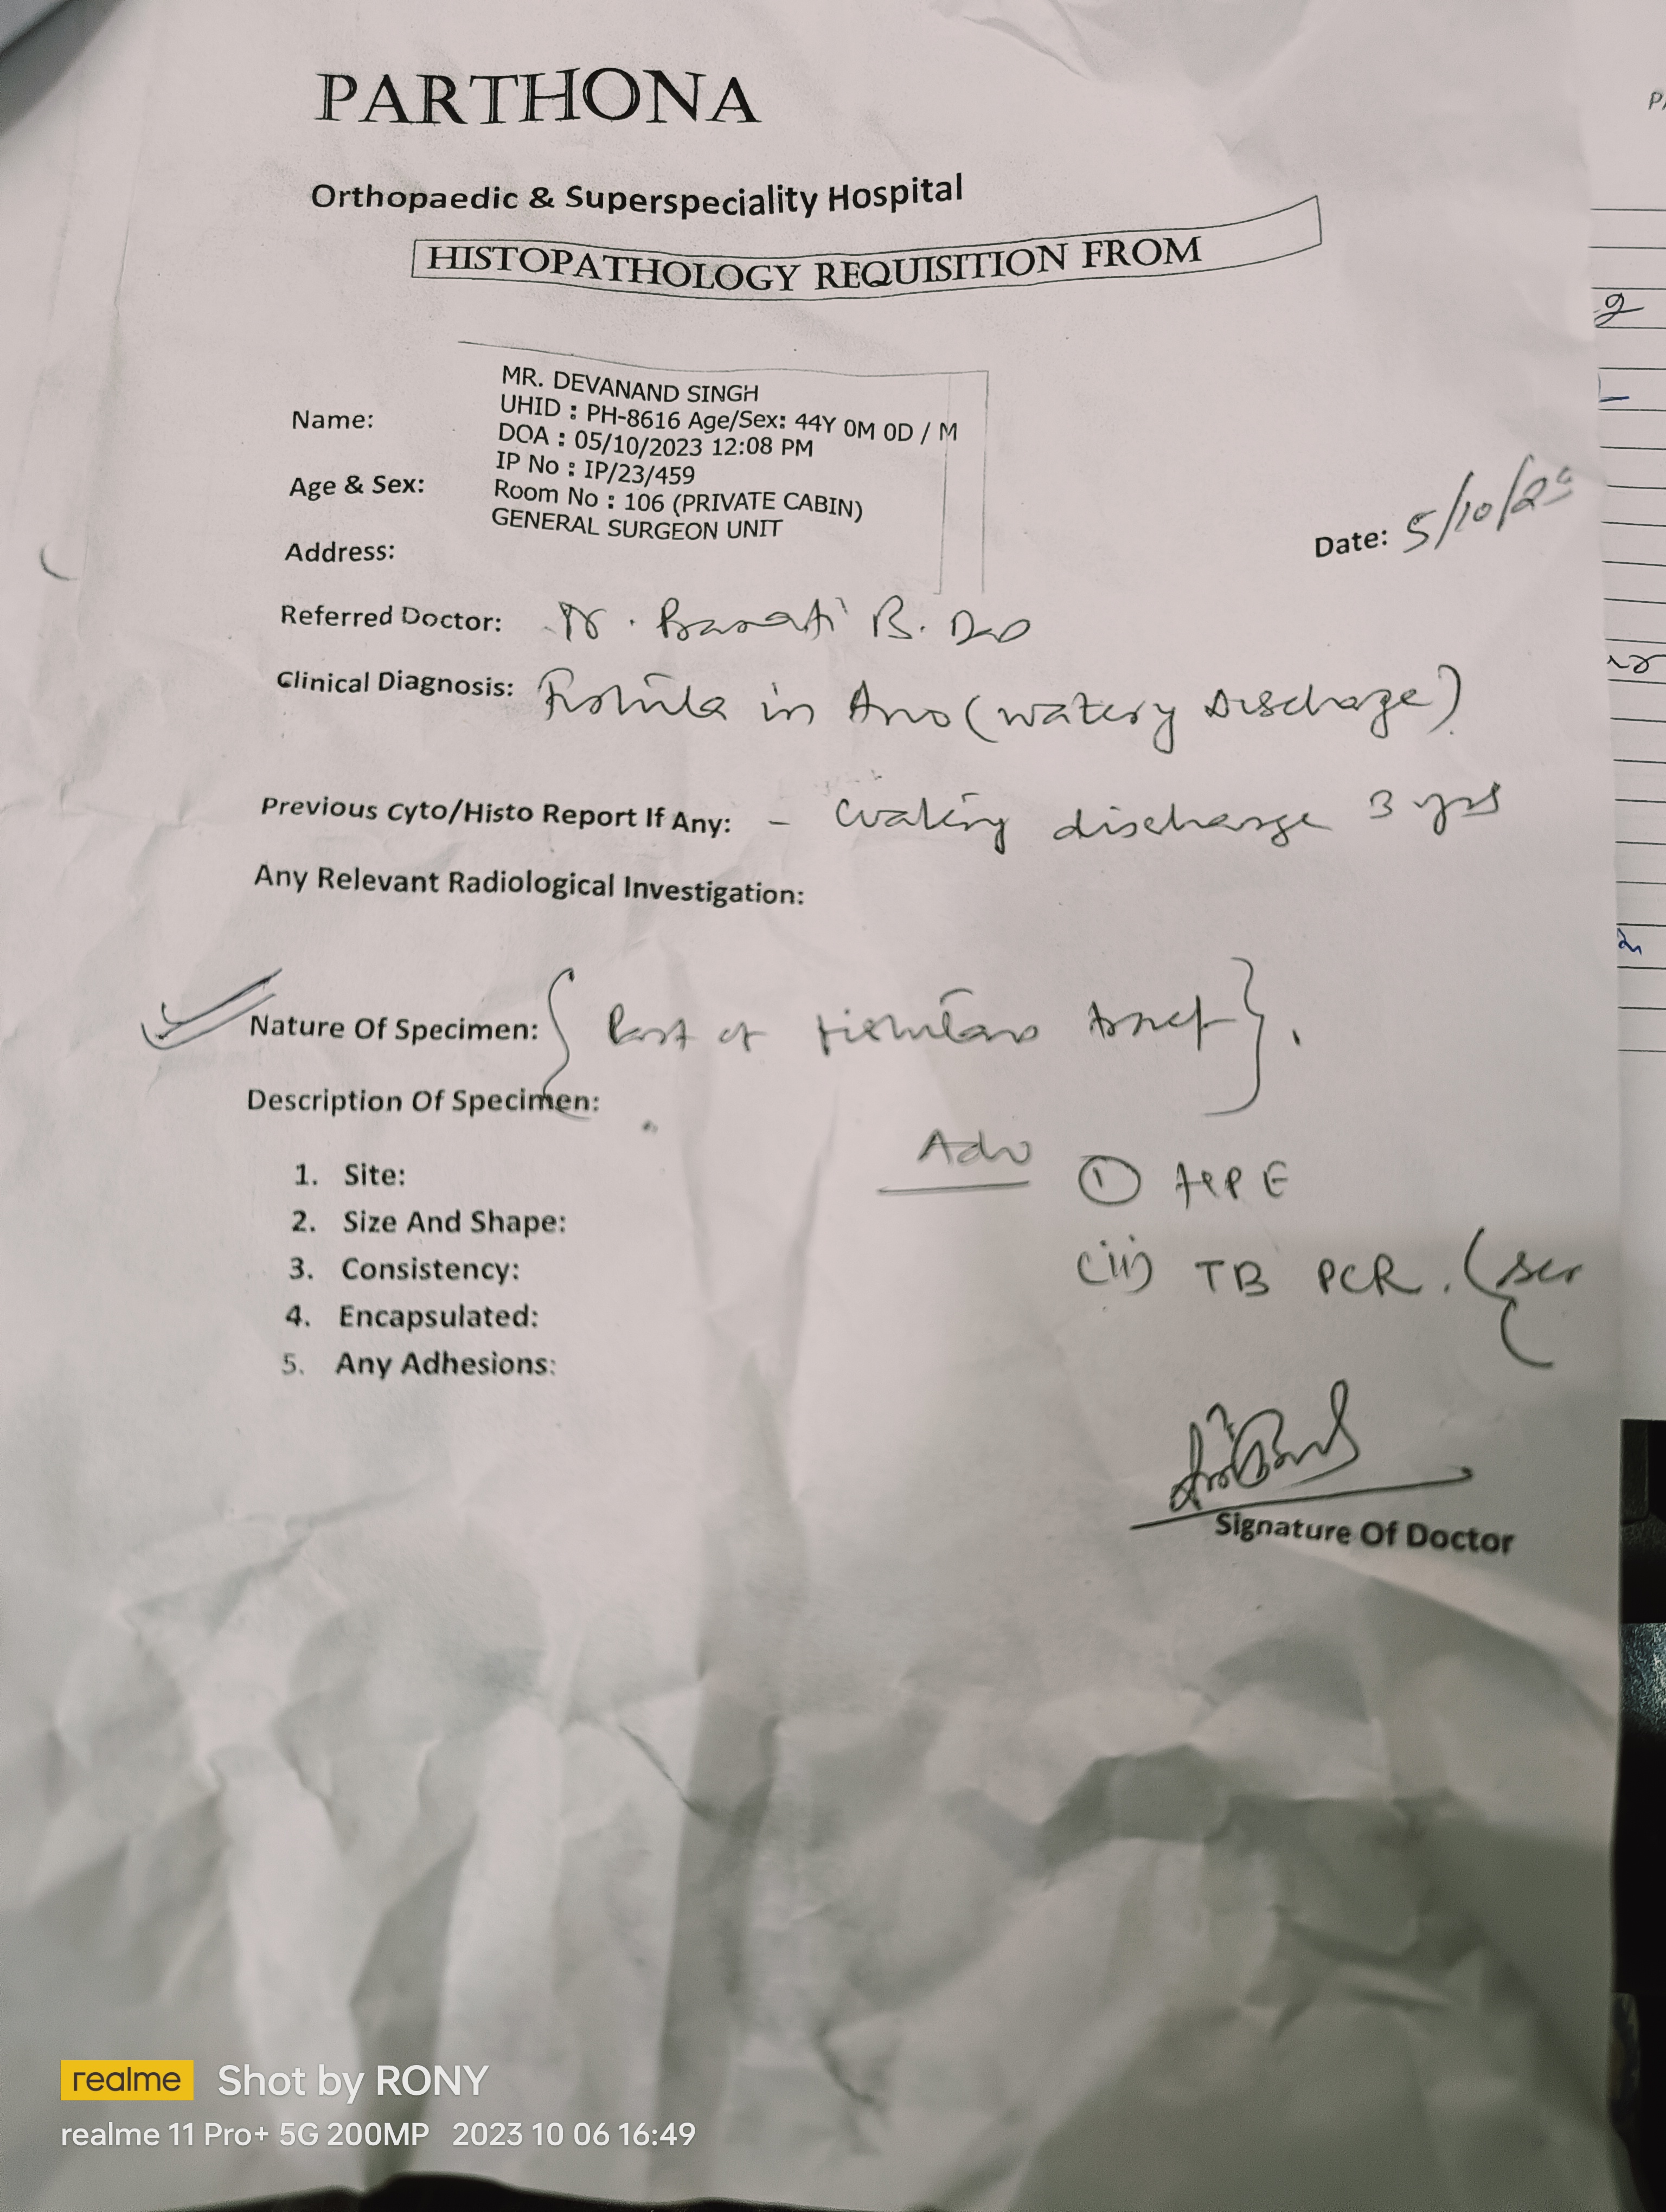 PARTHONA
Orthopaedic & Superspeciality Hospital
HISTOPATHOLOGY REQUISITION FROM
MR. DEVANAND SINGH
Name: UHID : PH-8616 Age/Sex: 44Y 0M 0D / M
DOA : 05/10/2023 12:08 PM
IP No : IP/23/459
Age & Sex: Room No : 106 (PRIVATE CABIN)
GENERAL SURGEON UNIT
Address:
Date: 5/10/23
Referred Doctor: Dr. B.
Clinical Diagnosis: Fistula in Ano (watery Discharge)
Previous Cyto/Histo Report If Any: - watery discharge 3 yrs
Any Relevant Radiological Investigation:
Nature Of Specimen: { Part of fistulous }.
Description Of Specimen:
Adv
1. Site: ① HPE
2. Size And Shape:
3. Consistency: (ii) TB PCR. (
4. Encapsulated:
5. Any Adhesions:
Signature Of Doctor
realme Shot by RONY
realme 11 Pro+ 5G 200MP 2023 10 06 16:49